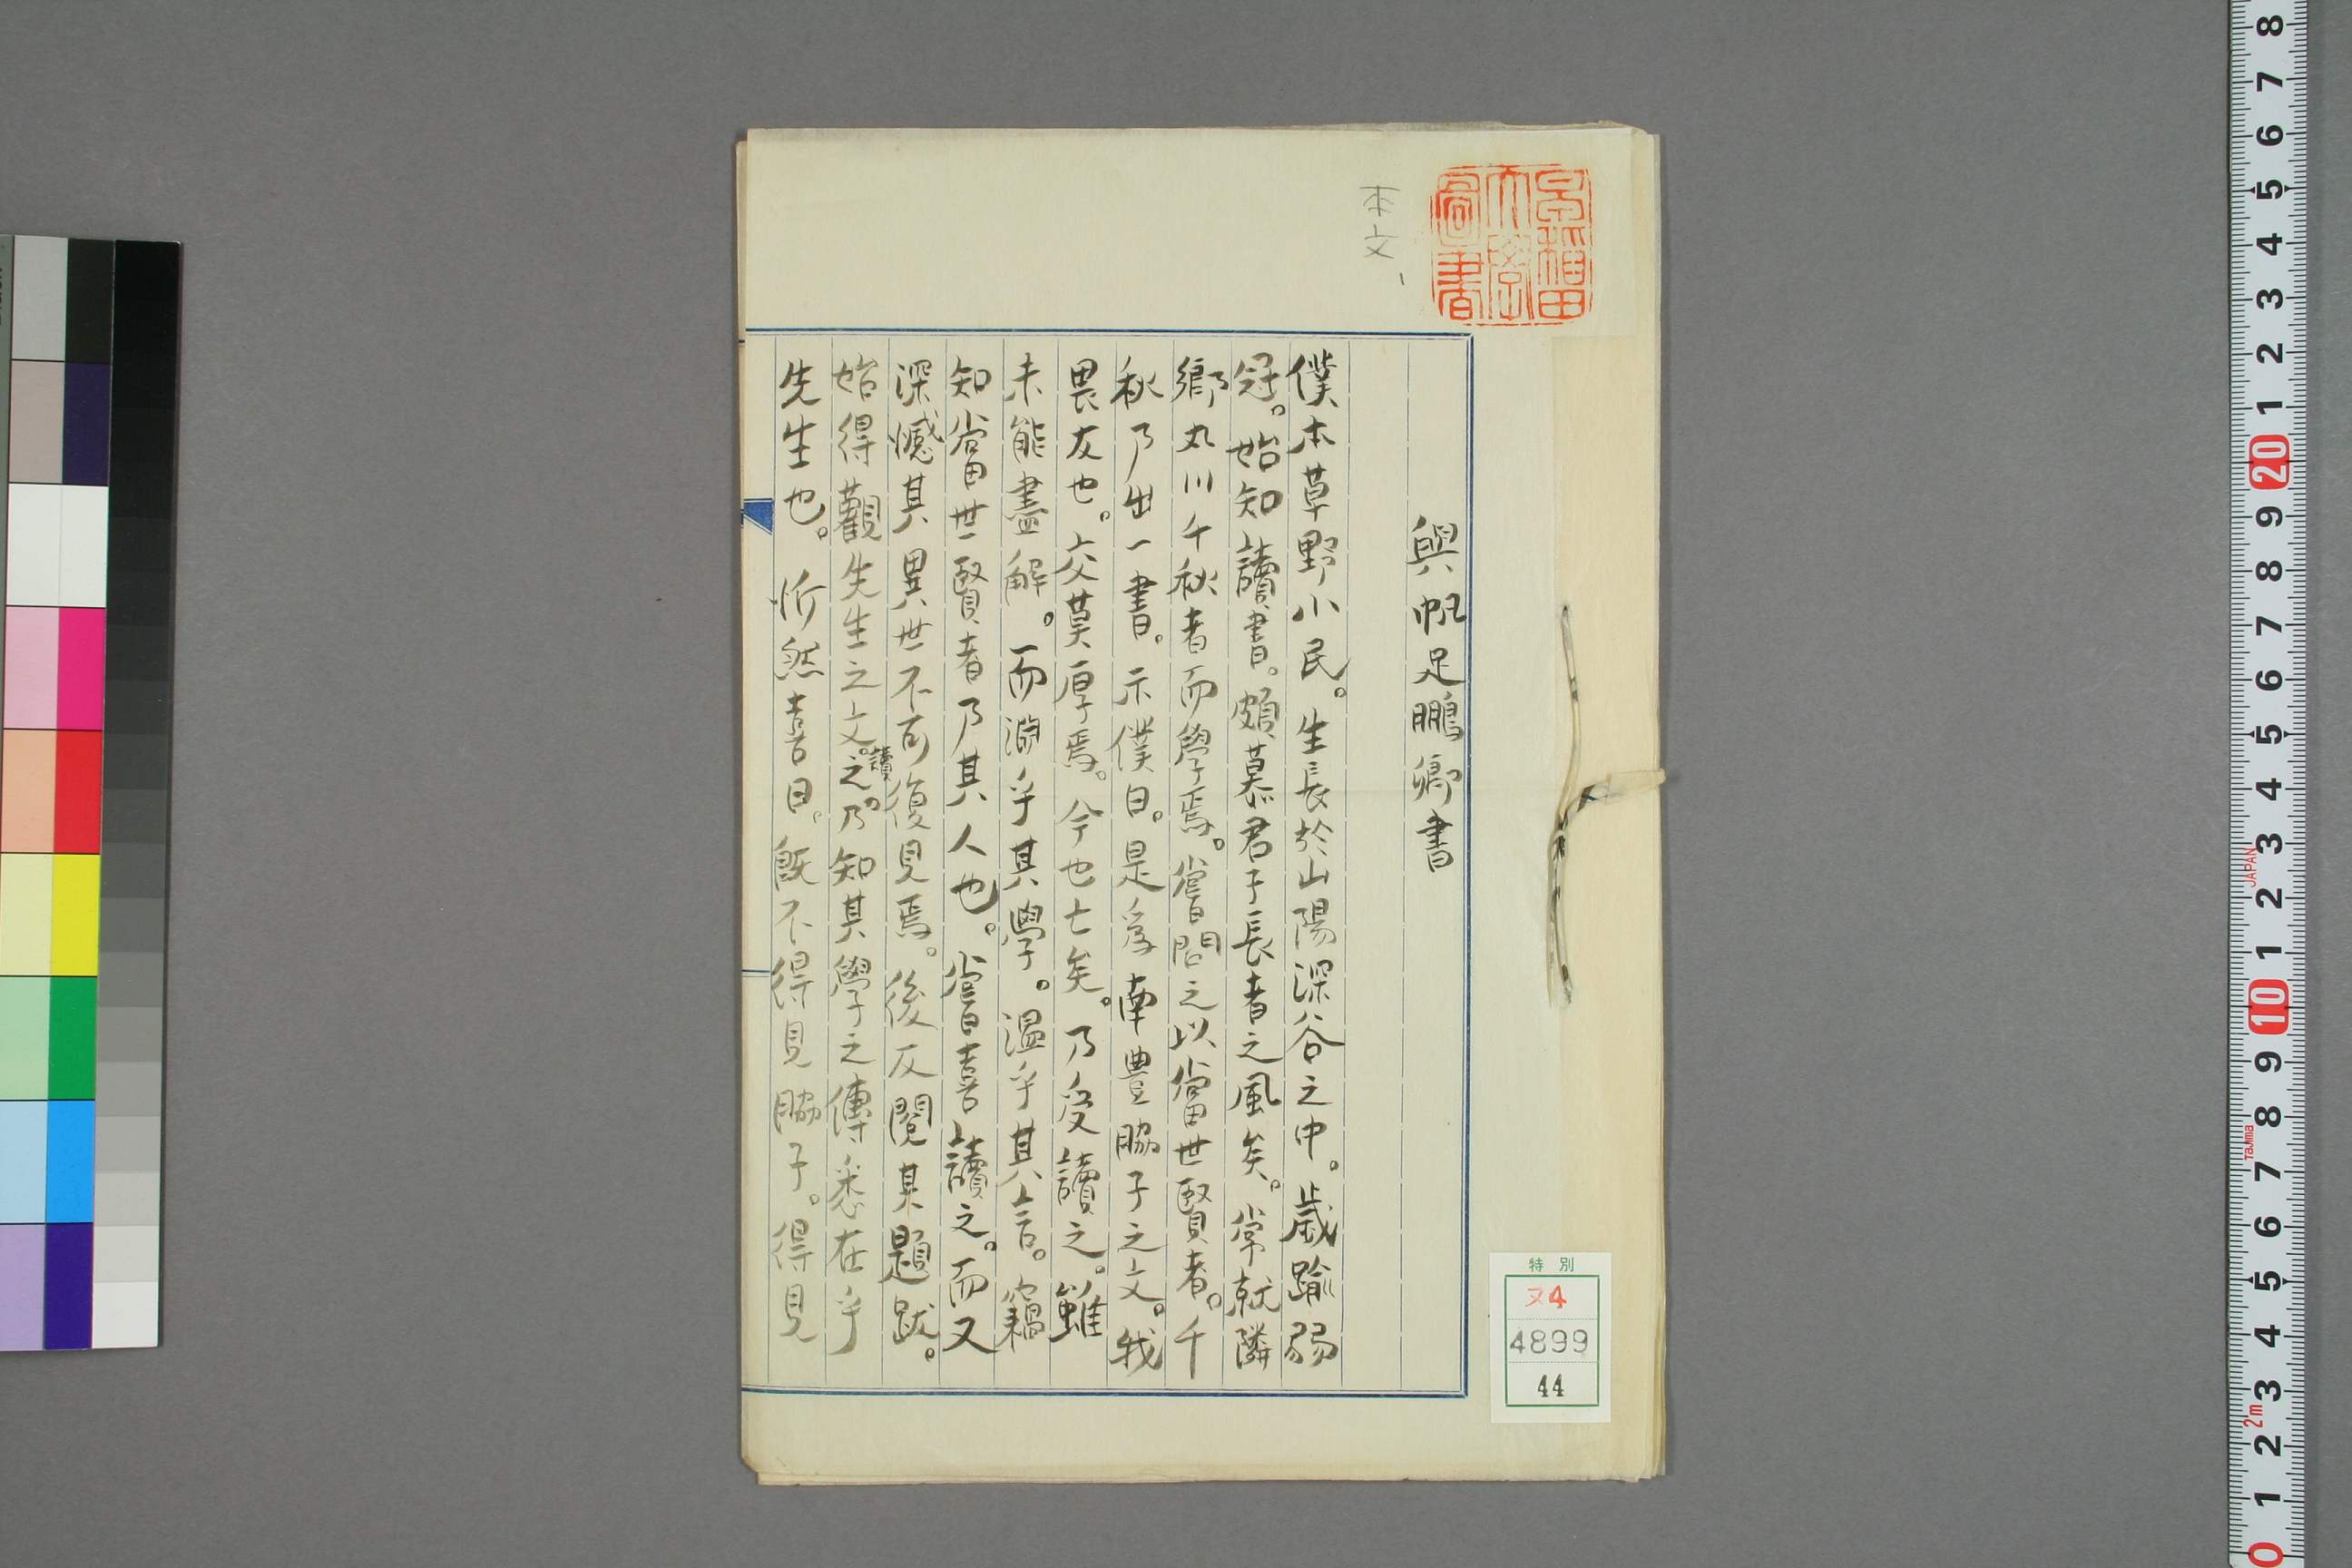 本文、
早稲田大學圖書
與帆足鵬卿書
僕本草野小民。生長於山陽深谷之中。歳踰弱
冠。始知讀書。頗慕君子長者之風矣。常就隣
鄕丸川千秋者而學焉。嘗問之以當世賢者。千
秋乃出一書。示僕曰。是爲南豊脇子之文。我
畏友也。交莫厚焉。今也亡矣。乃受讀之。雖
未能盡解。而淵乎其學。溫乎其言。竊
知當世賢者乃其人也。嘗喜讀之。而又
深憾其異世不可復見焉。後反閲其題跋。
始得觀先生之文。讀之。乃知其學之傳悉在乎
先生也。忻然喜曰。既不得見脇子。得見
特別
ヌ4
4899
44
8
7
6
5
4
3
2
1
20
9
8
7
6
5
4
3
2
1
10
9
8
7
6
5
4
3
2
1
0
JAPAN
Tajima
2m